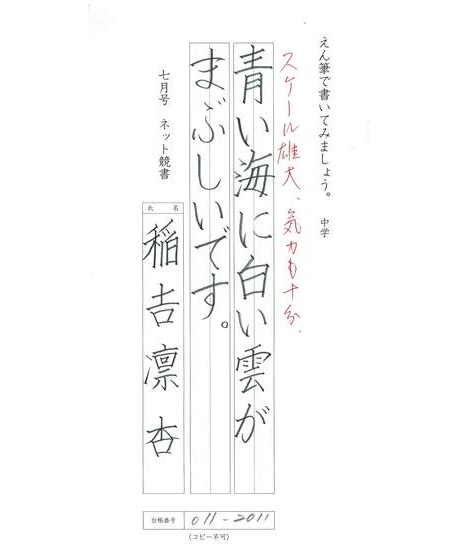 えん筆で書いてみましょう。 中学
スケール雄大、気力も十分、
青い海に白い雲が
まぶしいです。
七月号 ネット競書
氏名
稲吉凛杏
台帳番号 011-2011
(コピー不可)